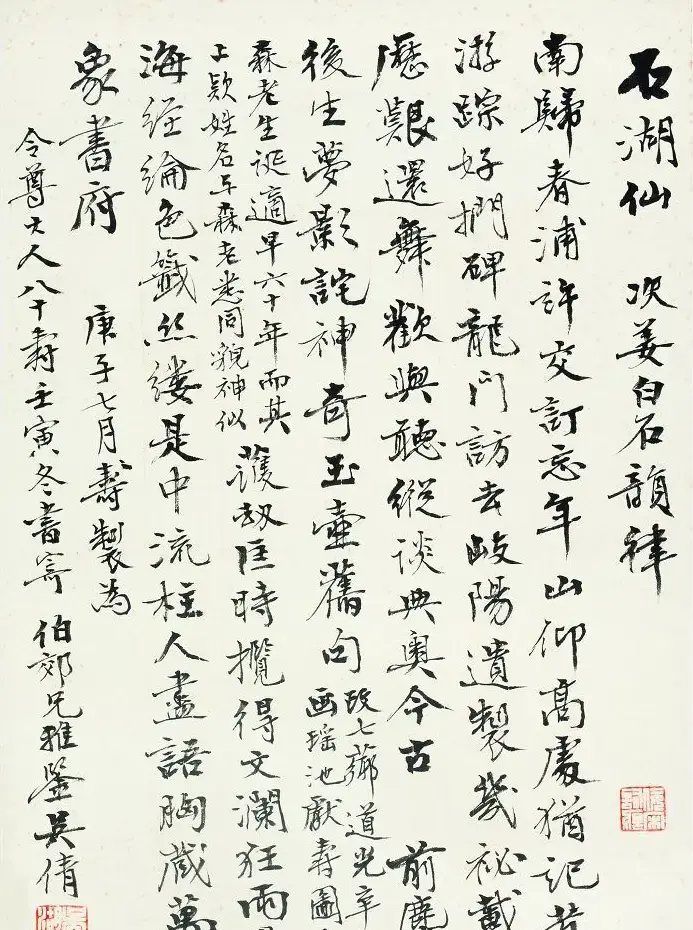 石湖仙 次姜白石韻律
南歸春浦許交訂忘年山仰高處猶記昔
游蹤好捫碑龍門訪去岐陽遺製幾祕戴
歷艱還舞歡與聽縱談典奧今古 前塵
後生夢影詫神奇玉壺舊句
改七薌道光辛
画瑶池獻壽圖
森老生誕適早六十年而其
上款姓名与森老悉同貌神似
護劫匡時攬得文瀾狂雨
海經綸色籤丝縷是中流柱人盡語胸藏萬
象書府
庚子七月壽製為
令尊大人八十壽壬寅冬書寄 伯郊兄雅鑒 吳倩